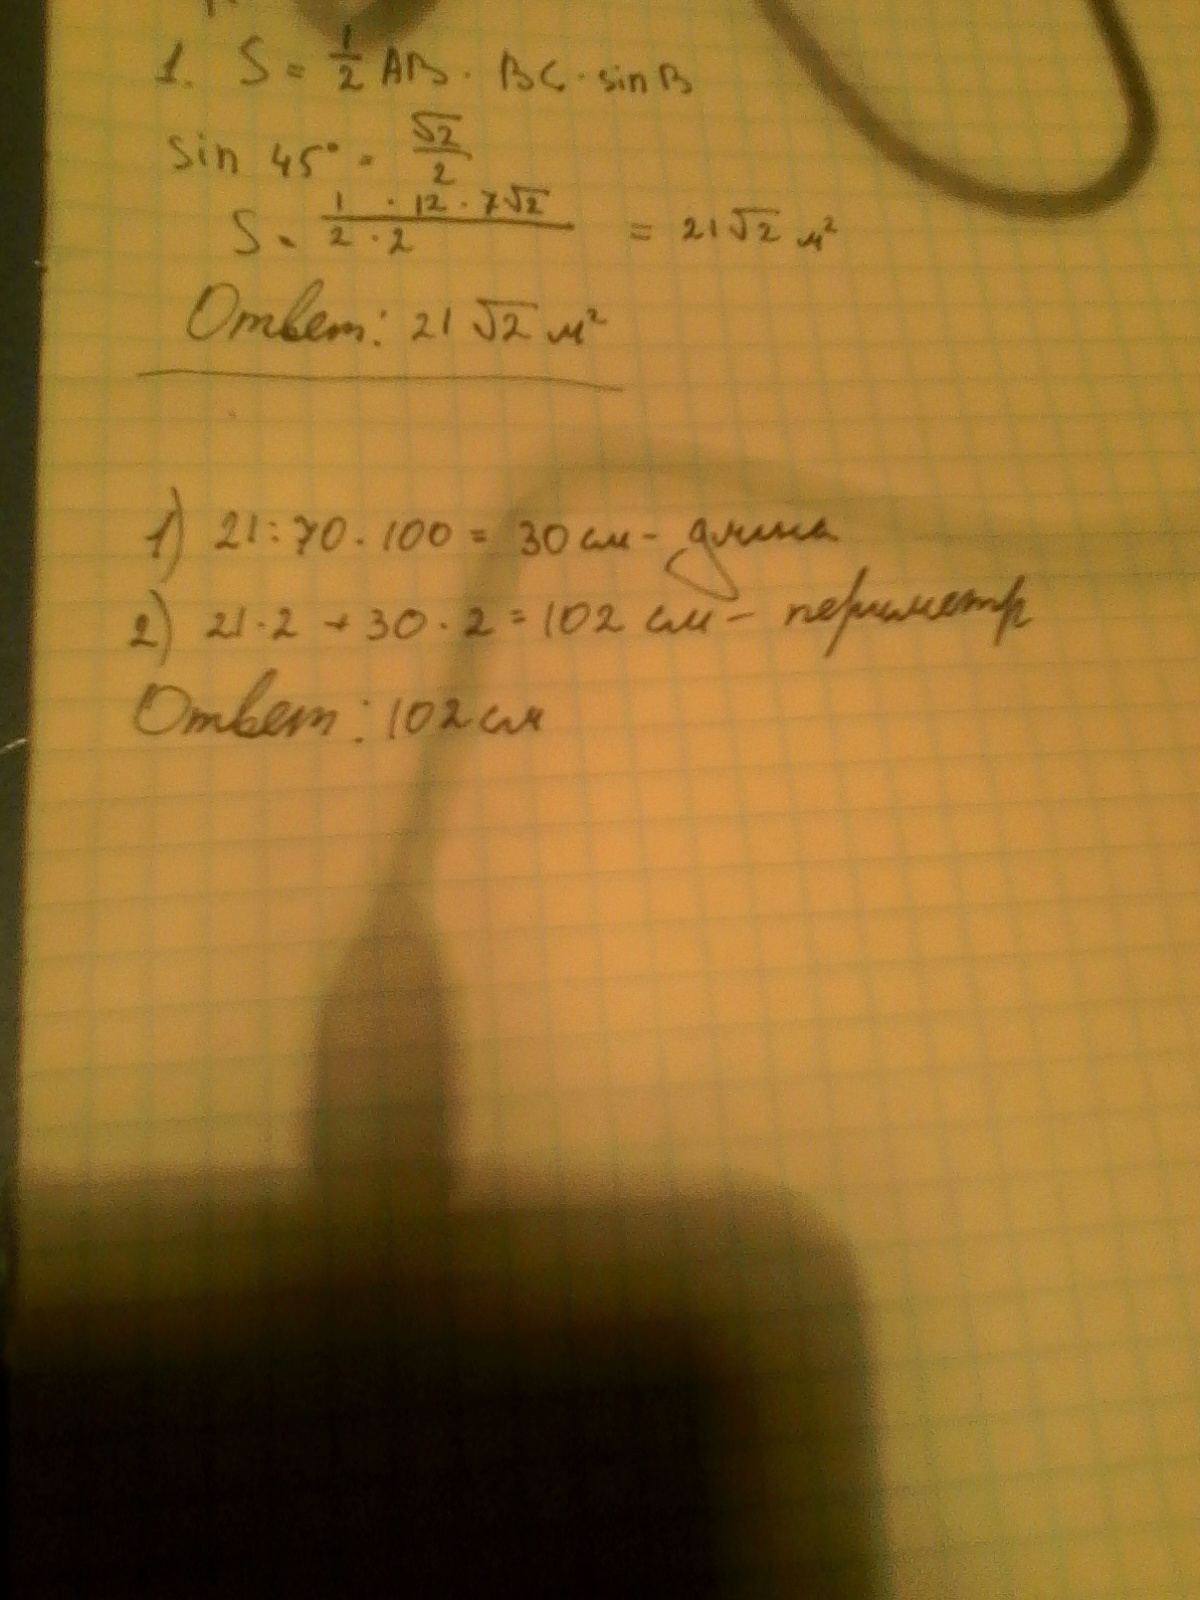 1. S = 1/2 AB · BC · sin B
sin 45° = √2/2
S = (1 · 12 · 7√2)/(2 · 2) = 21√2 м²
Ответ: 21√2 м²
1) 21:70·100 = 30 см - длина
2) 21·2 + 30·2 = 102 см - периметр
Ответ: 102 см